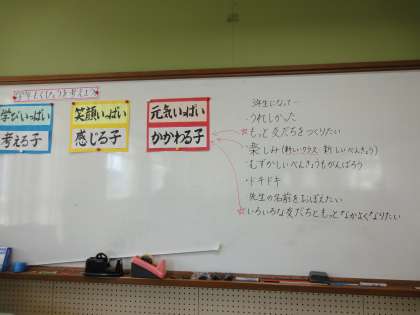 学びいっぱい
考える子
笑顔いっぱい
感じる子
元気いっぱい
かかわる子
3年生になって…
・うれしかった
☆もっと友だちをつくりたい
・楽しみ(新しいクラス・新しいべんきょう)
・むずかしいべんきょうもがんばろう
・ドキドキ
・先生の名前をおぼえたい
☆いろいろな友だちともっとなかよくなりたい